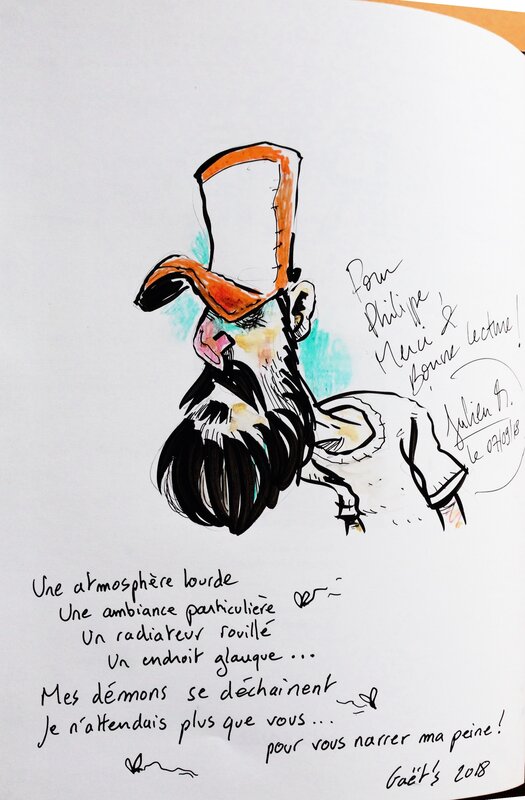 Pour
Philippe,
Merci &
Bonne lecture!
Julien
le 07/09/18
Une atmosphère lourde
Une ambiance particulière
Un radiateur rouillé
Un endroit glauque ...
Mes démons se déchainent
Je n'attendais plus que vous ...
pour vous narrer ma peine !
Gaët's 2018